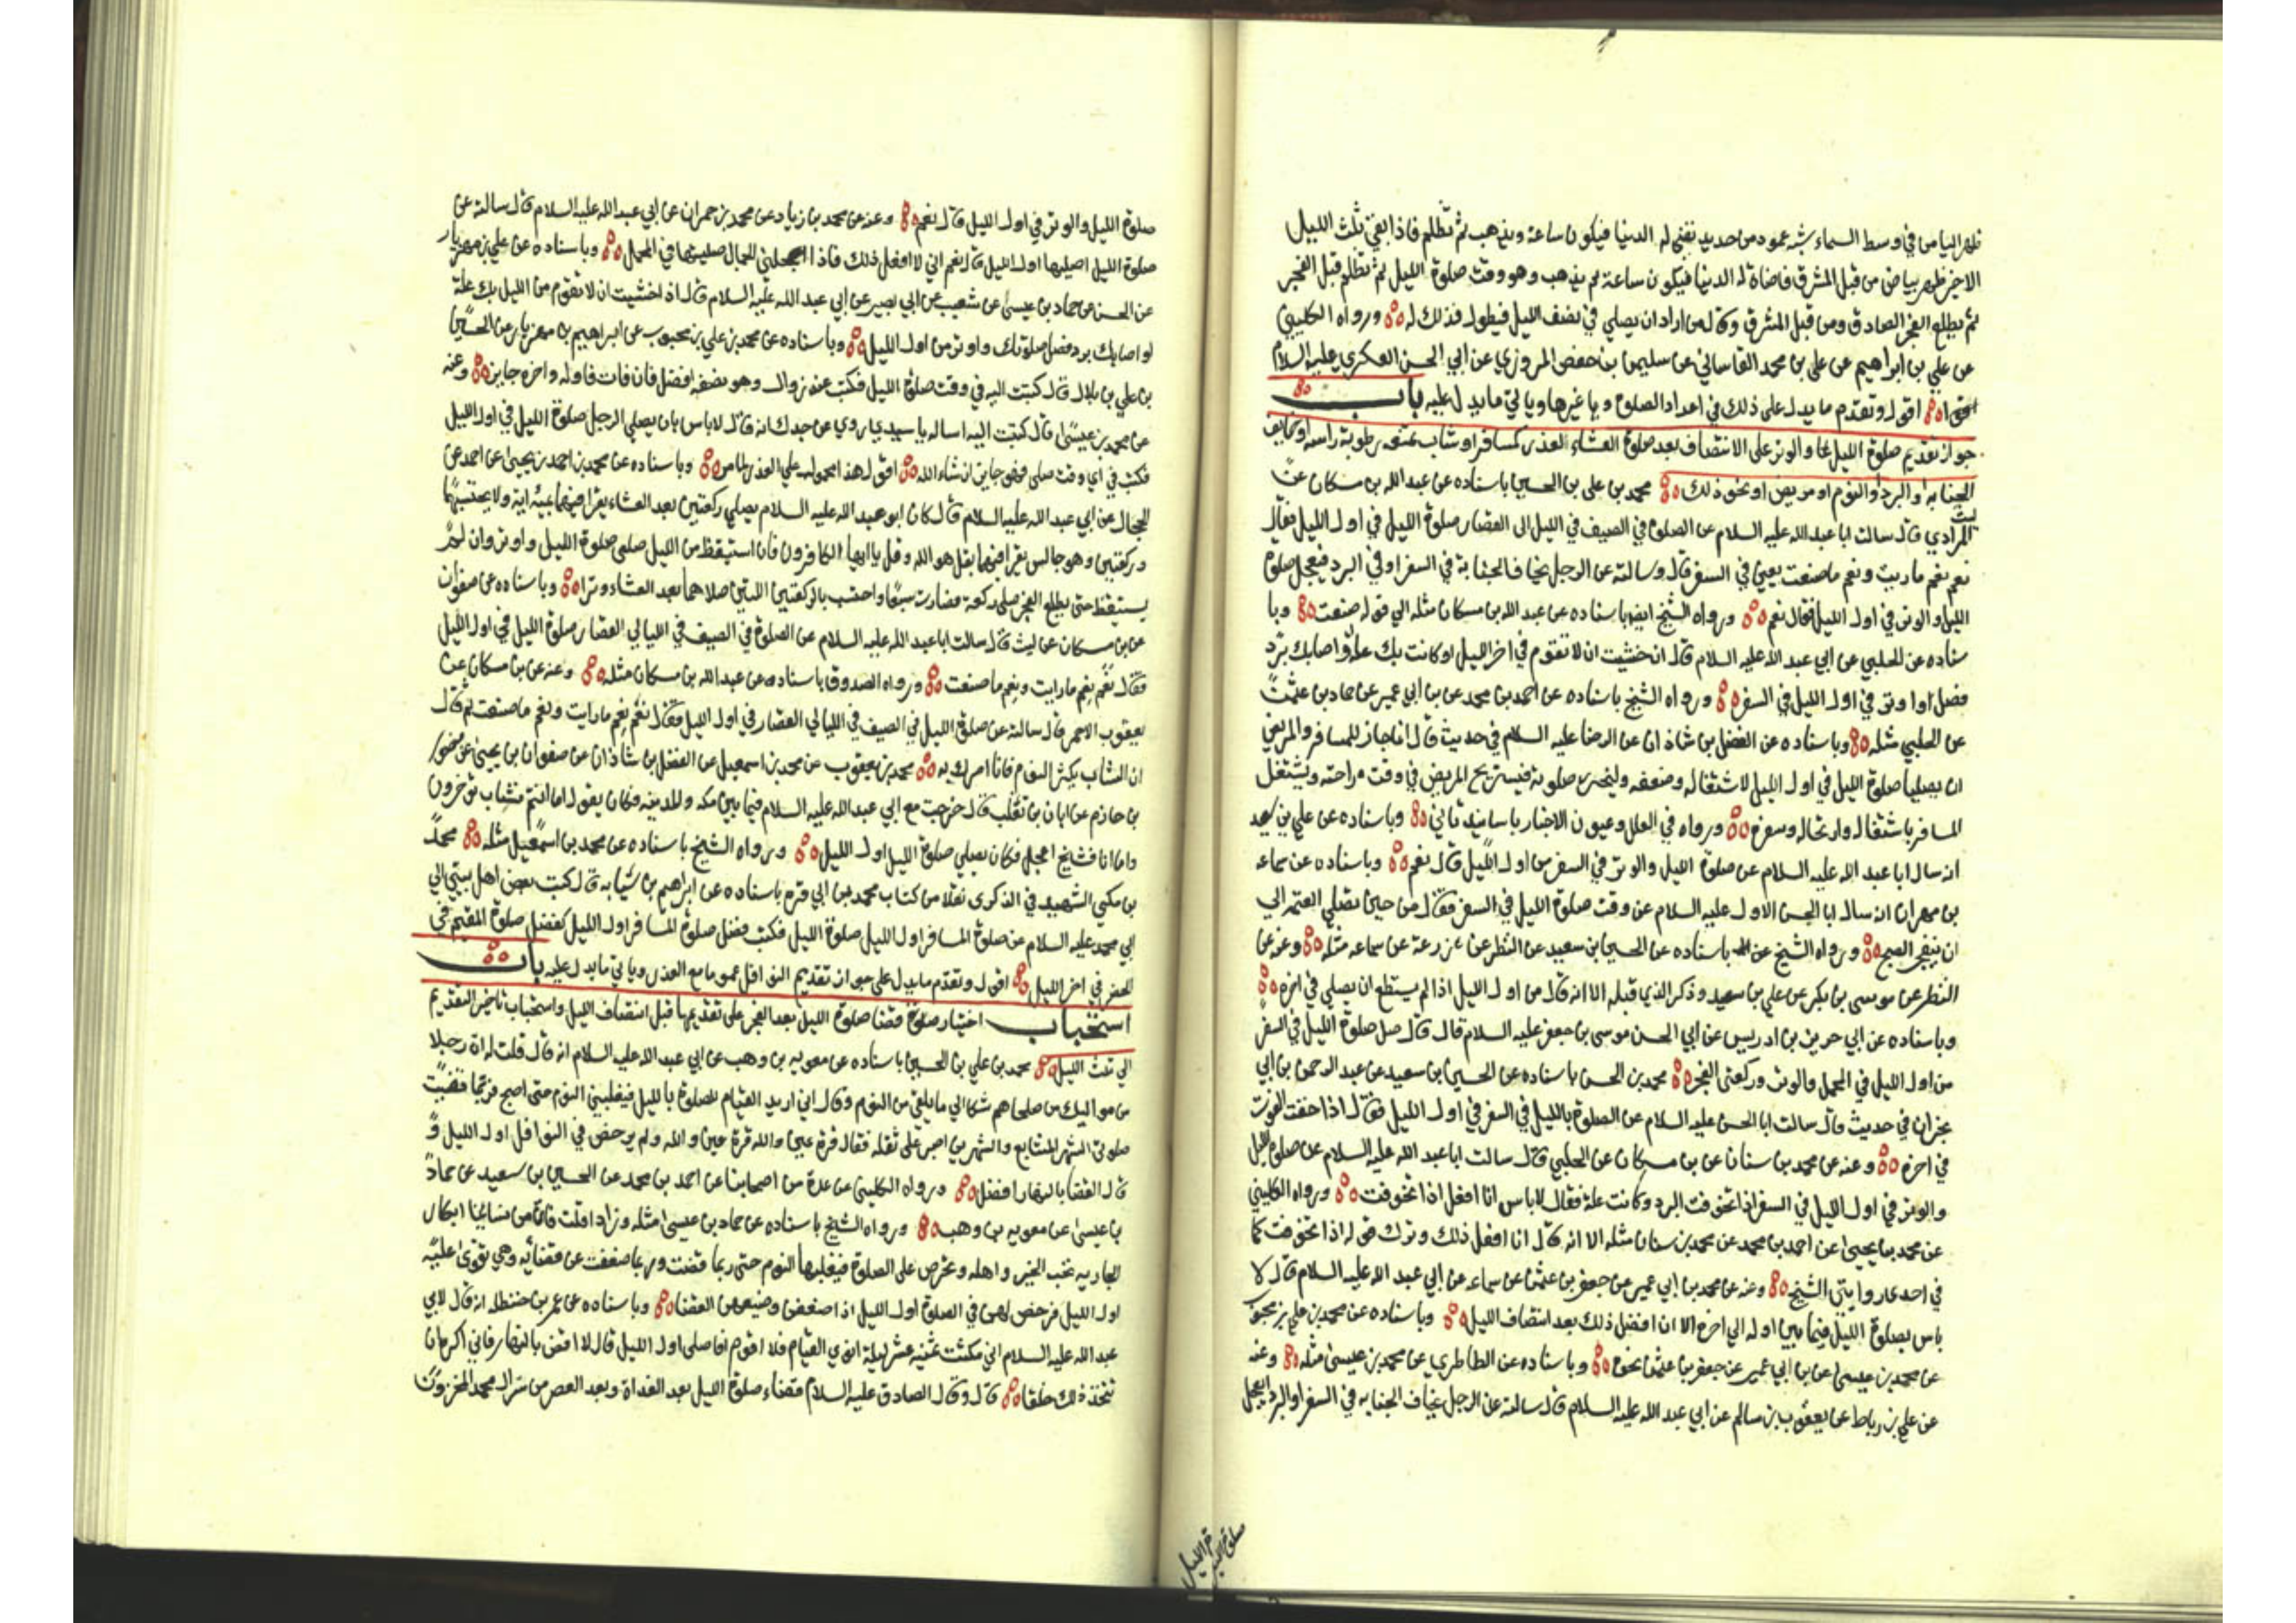 ظهر البياض في وسط السماء شبه عمود من حديد تضئ له الدنيا فيكون ساعة ويذهب ثم تظلم فاذا بقي ثلث الليل
الاخير ظهر بياض من قبل المشرق فاضاة له الدنيا فيكون ساعة ثم يذهب وهو وقت صلوة الليل ثم تظلم قبل الفجر
ثم يطلع الفجر الصادق ومن قبل المشرق وقال من اراد ان يصلي في نصف الليل فيطول فذلك له ورواه الكليني
عن علي بن ابراهيم عن علي بن محمد القاساني عن سليمن بن حفص المروزي عن ابي الحسن العسكري عليه السلام
نحوه اقول وتقدم ما يدل على ذلك في اعداد الصلوة وياغيرها وياتي ما يدل عليه باب
جواز تقديم صلوة الليل والوتر على الانتصاف بعد صلوة العشاء لعذر كمسافر او شاب تمنعه رطوبة راسه او خايف
الجنابه او البرد او النوم او مريض او نحو ذلك محمد بن علي بن الحسين باسناده عن عبد الله بن مسكان عن
ليث المرادي قال سالت ابا عبد الله عليه السلام عن الصلوة في الصيف في الليل الى القصار صلوة الليل في اول الليل فقال
نعم نعم ما رايت ونعم ما صنعت يعني في السفر قال وسالته عن الرجل يخاف الجنابة في السفر او في البرد فيعجل صلوة
الليل والوتر في اول الليل فقال نعم ورواه الشيخ ايضا باسناده عن عبد الله بن مسكان مثله الى قوله صنعت وبا
سناده عن الحلبي عن ابي عبد الله عليه السلام قال ان خشيت ان لا تقوم في اخر الليل او كانت بك علة او اصابك برد
فصل او اوتر في اول الليل في السفر ورواه الشيخ باسناده عن احمد بن محمد عن بن ابي عمير عن حماد بن عثمن
عن الحلبي مثله وباسناده عن الفضل بن شاذان عن الرضا عليه السلام في حديث قال انما جاز للمسافر والمريض
ان يصليا صلوة الليل في اول الليل لاشتغاله وضعفه وليحرز صلوته فيستريح المريض في وقت راحته ويشتغل
المسافر باشتغاله وارتحاله وسفره ورواه في العلل وعيون الاخبار باسانيد تاتي وباسناده عن علي بن سعيد
انه سال ابا عبد الله عليه السلام عن صلوة الليل والوتر في السفر من اول الليل قال نعم وباسناده عن سماعه
بن مهران انه سال ابا الحسن الاول عليه السلام عن وقت صلوة الليل في السفر فقال من حين تصلي العتمه الى
ان ينفجر الصبح ورواه الشيخ باسناده عن الحسين بن سعيد عن النظر عن زرعة عن سماعه مثله وعنه عن
النظر عن موسى بن بكر عن علي بن سعيد وذكر الذي قبله الا انه قال من اول الليل اذا لم يستطع ان يصلي في اخره
وباسناده عن ابي حريز بن ادريس عن ابي الحسن موسى بن جعفر عليه السلام قال قال صل صلوة الليل في السفر
من اول الليل في المحمل والوتر وركعتي الفجر محمد بن الحسن باسناده عن الحسين بن سعيد عن عبد الرحمن بن ابي
نجران في حديث قال سالت ابا الحسن عليه السلام عن الصلوة بالليل في السفر في اول الليل فقال اذا خفت الفوت
في اخره وعنه عن محمد بن سنان عن بن مسكان عن الحلبي قال سالت ابا عبد الله عليه السلام عن صلوة الليل
والوتر في اول الليل في السفر اذا تخوفت البرد وكانت علة فقال لاباس انا افعل اذا تخوفت ورواه الكليني
عن محمد بن يحيى عن احمد بن محمد عن محمد بن سنان مثله الا انه قال انا افعل ذلك وترك قوله اذا تخوفت كما
في احدى روايتي الشيخ وعنه عن محمد بن ابي عمير عن جعفر بن عثمن عن سماعه عن ابي عبد الله عليه السلام قال لا
باس بصلوة الليل فيما بين اوله الى اخره الا ان افضل ذلك بعد انتصاف الليل وباسناده عن محمد بن علي بن محبوب
عن محمد بن عيسى عن بن ابي عمير عن جعفر بن عثمن نحوه وباسناده عن الطاطري عن محمد بن عيسى مثله وعنه
عن علي بن رباط عن يعقوب بن سالم عن ابي عبد الله عليه السلام قال سالته عن الرجل يخاف الجنابه في السفر او البرد ايعجل
صلوة الليل
صلوة الليل والوتر في اول الليل قال نعم وعنه عن محمد بن زياد عن محمد بن حمران عن ابي عبد الله عليه السلام قال سالته عن
صلوة الليل اصليها اول الليل قال نعم اني لا افعل ذلك فاذا اعجلني الجمال صليتها في المحمل وباسناده عن علي بن مهزيار
عن الحسن عن حماد بن عيسى عن شعيب عن ابي بصير عن ابي عبد الله عليه السلام قال اذا خشيت ان لا تقوم من الليل بك علة
او اصابك برد فصل صلوتك واوتر من اول الليل وباسناده عن محمد بن علي بن محبوب عن ابراهيم بن مهزيار عن الحسين
بن علي بن بلال قال كتبت اليه في وقت صلوة الليل فكتب عند زوال وهو نصفه افضل فان فات فاوله واخره جايز وعنه
عن محمد بن عيسى قال كتبت اليه اساله يا سيدي روي عن جدك انه قال لاباس بان يصلي الرجل صلوة الليل في اول الليل
فكتب في اي وقت صلى فهو جايز ان شاء الله اقول هذا محمول على العذر لما مر وباسناده عن محمد بن احمد بن يحيى عن احمد عن
الحجال عن ابي عبد الله عليه السلام قال كان ابو عبد الله عليه السلام يصلي ركعتين بعد العشاء يقرا فيهما بمئة اية ولا يحتسبهما
وركعتين وهو جالس يقرا فيهما بقل هو الله وقل يا ايها الكافرون فان استيقظ من الليل صلى صلوة الليل واوتر وان لم
يستيقظ حتى يطلع الفجر صلى ركعة فصارت سبعا واحتسب بالركعتين اللتين صلاهما بعد العشاء وترا وباسناده عن صفوان
عن بن مسكان عن ليث قال سالت ابا عبد الله عليه السلام عن الصلوة في الصيف في الليالي القصار صلوة الليل في اول الليل
فقال نعم نعم ما رايت ونعم ما صنعت ورواه الصدوق باسناده عن عبد الله بن مسكان مثله وعنه عن بن مسكان عن
يعقوب الاحمر قال سالته عن صلوة الليل في الصيف في الليالي القصار في اول الليل فقال نعم نعم ما رايت ونعم ما صنعت ثم قال
ان الشاب يكثر النوم فانا امرك به محمد بن يعقوب عن محمد بن اسمعيل عن الفضل بن شاذان عن صفوان بن يحيى عن منصور
بن حازم عن ابان بن تغلب قال خرجت مع ابي عبد الله عليه السلام فيما بين مكه والمدينه فكان يقول اما انتم فشباب تؤخرون
واما انا فشيخ اعجل فكان يصلي صلوة الليل اول الليل ورواه الشيخ باسناده عن محمد بن اسمعيل مثله محمد
بن مكي الشهيد في الذكرى نقلا من كتاب محمد بن ابي قره باسناده عن ابراهيم بن سيابه قال كتب بعض اهل بيتي الى
ابي محمد عليه السلام عن صلوة المسافر اول الليل صلوة الليل فكتب فضل صلوة المسافر اول الليل كفضل صلوة المقيم في
الحضر في اخر الليل اقول وتقدم ما يدل على جواز تقديم النوافل عموما مع العذر وياتي ما يدل عليه باب
استحباب اختيار صلوة قضا صلوة الليل بعد الفجر على تقديمها قبل انتصاف الليل واستحباب تاخير التقديم
الى ثلث الليل محمد بن علي بن الحسين باسناده عن معويه بن وهب عن ابي عبد الله عليه السلام انه قال قلت له ان رجلا
من مواليك من صلحاهم شكا الي ما يلقى من النوم وقال اني اريد القيام للصلوة بالليل فيغلبني النوم حتى اصبح فربما قضيت
صلوتي الشهر المتتابع والشهرين اصبر على ثقله فقال قرة عين والله قرة عين والله ولم يرخص في النوافل اول الليل و
قال القضا بالنهار افضل ورواه الكليني عن عدة من اصحابنا عن احمد بن محمد عن الحسين بن سعيد عن حماد
بن عيسى عن معويه بن وهب ورواه الشيخ باسناده عن حماد بن عيسى مثله وزاد قلت فان من نسائنا ابكار
الجاريه تحب الخير واهله وتحرص على الصلوة فيغلبها النوم حتى ربما قضت وربما ضعفت عن قضائه وهي تقوى عليه
اول الليل فرخص لهن في الصلوة اول الليل اذا ضعفن وضيعن القضا وباسناده عن عمر بن حنظله انه قال لابي
عبد الله عليه السلام اني مكثت ثمنيه عشر ليلة انوي القيام فلا اقوم افاصلي اول الليل قال لا اقض بالنهار فاني اكره ان
تتخذ ذلك خلقا قال وقال الصادق عليه السلام قضاء صلوة الليل بعد الغداة وبعد العصر من سر ال محمد المخزون